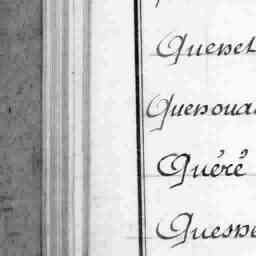 Quenet
Quenoua
Quéré
Quesne